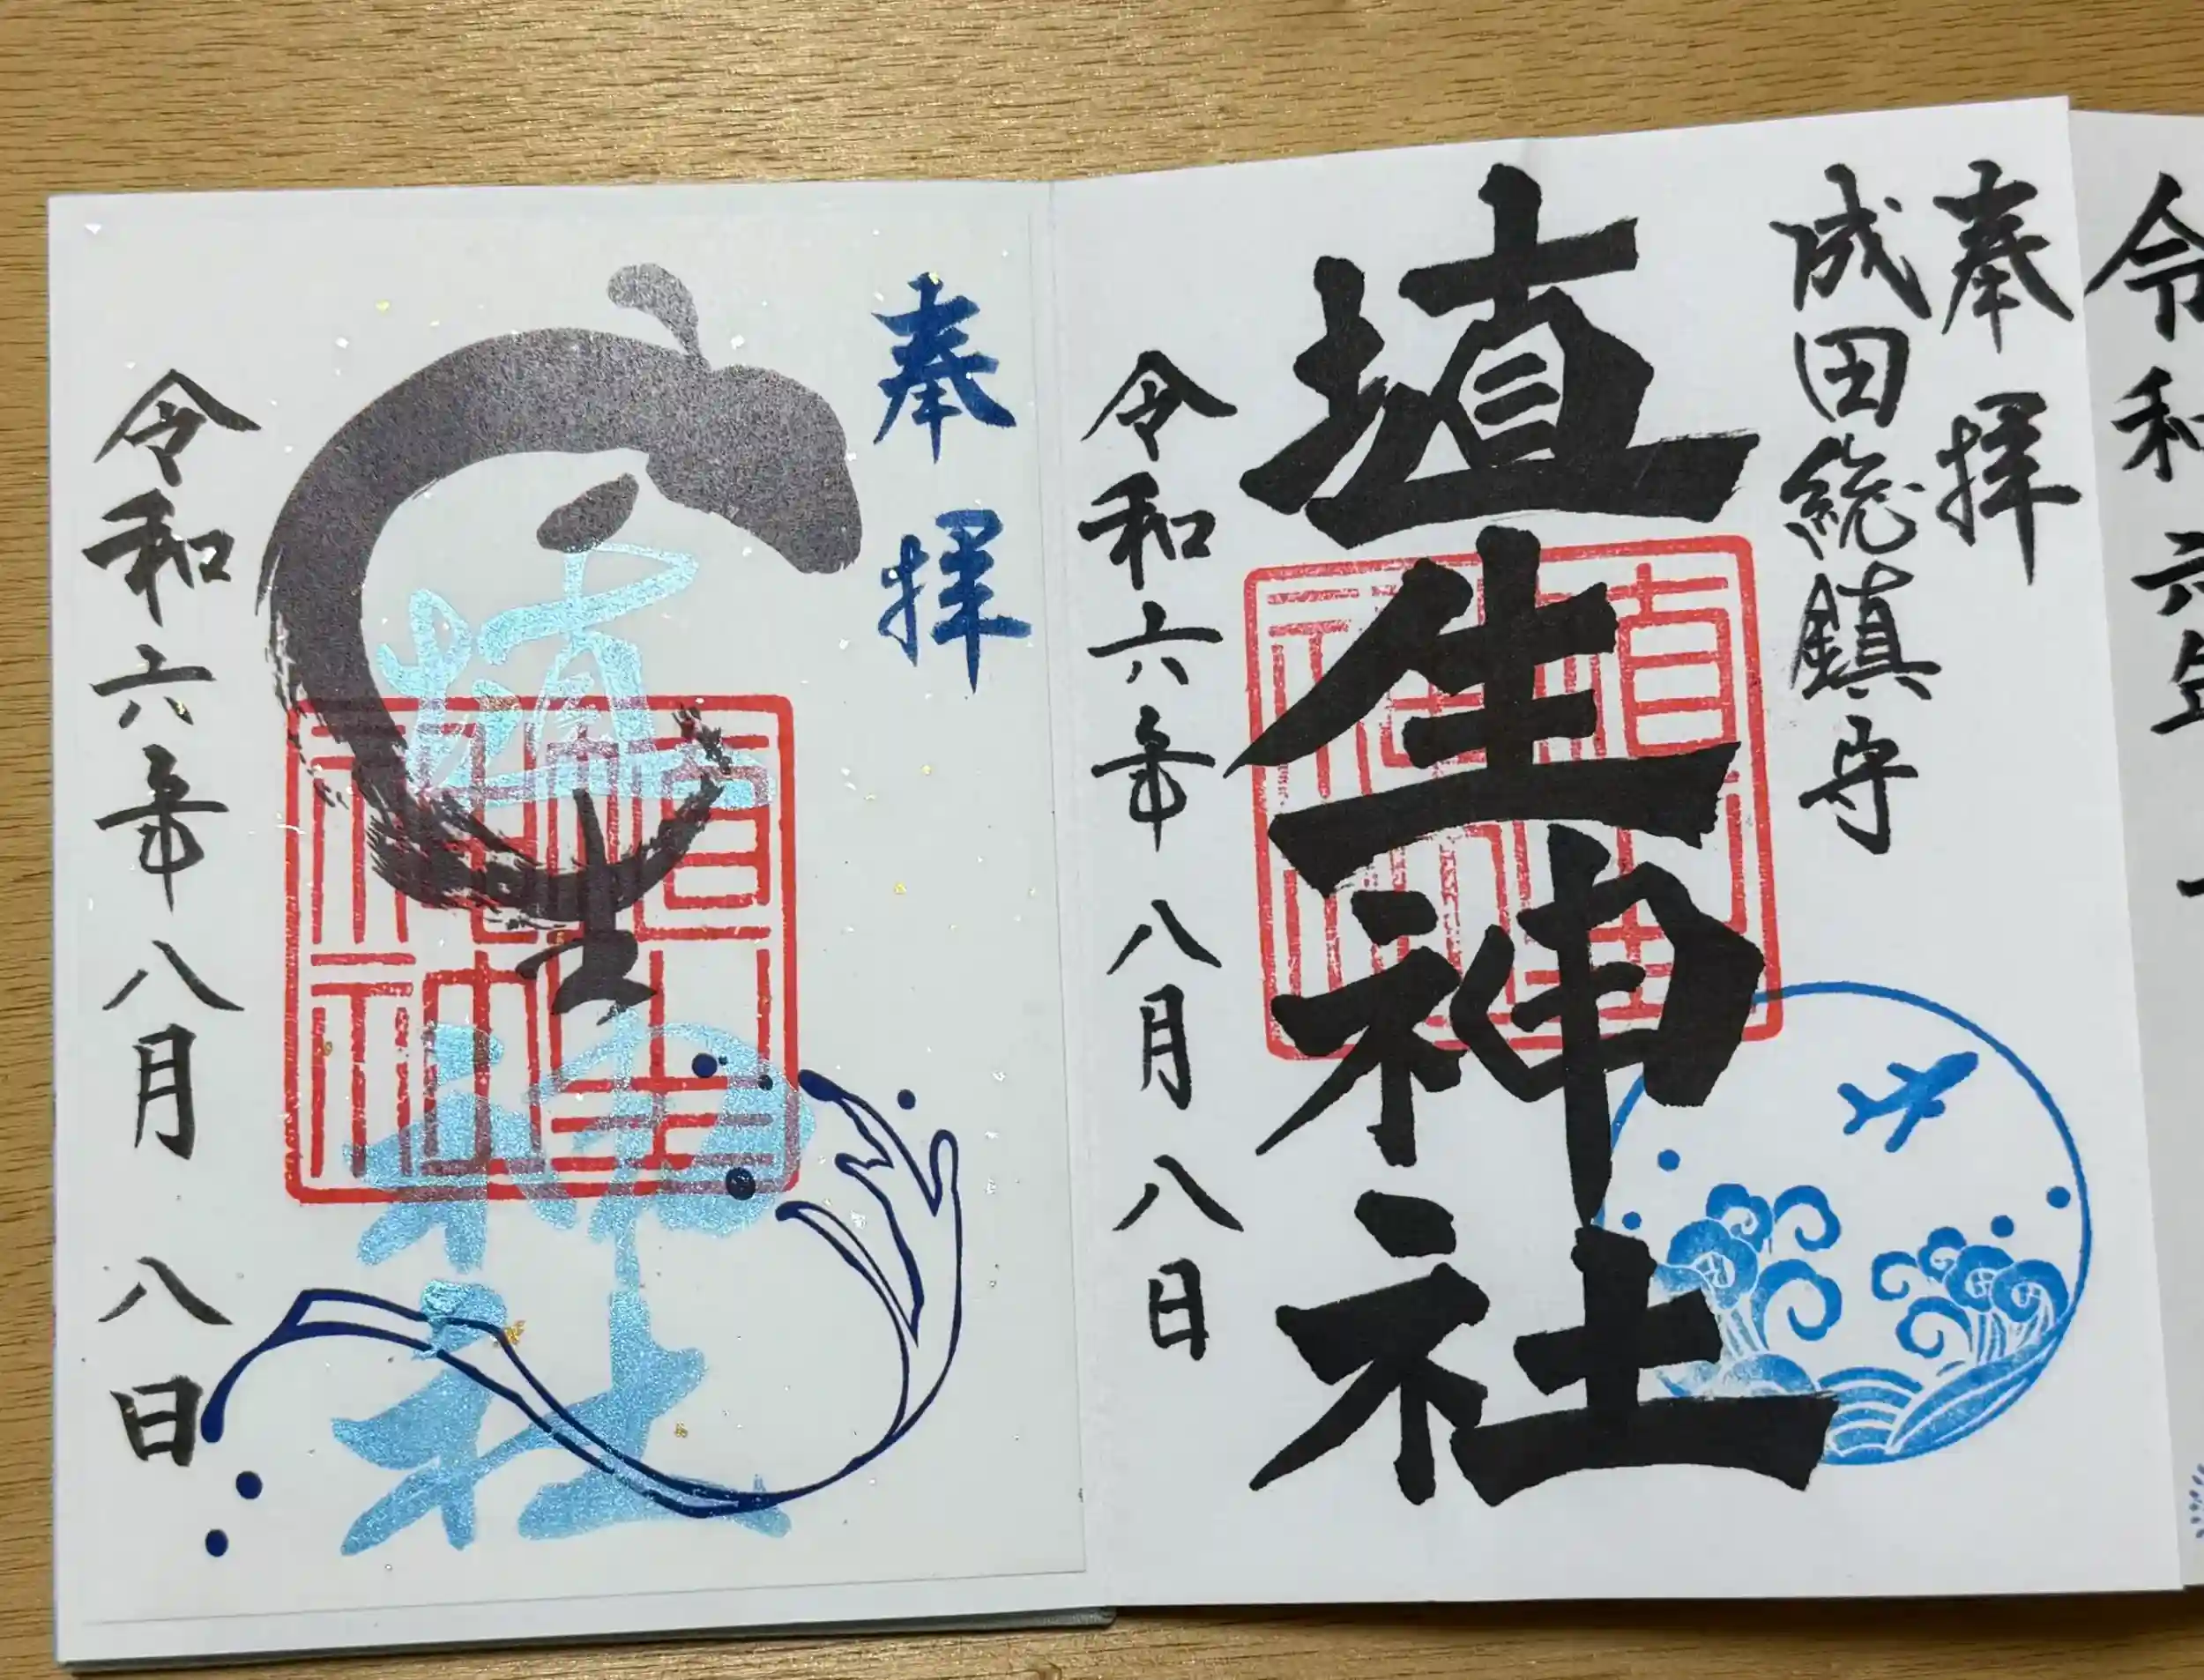 令和六年
奉拝
成田総鎮守
埴生神社
埴生神社
令和六年八月八日
奉拝
埴生神社
埴生神社
令和六年八月八日